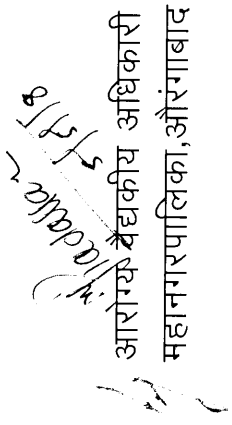 5/5/18
आरोग्य वैद्यकीय अधिकारी
महानगरपालिका,औरंगाबाद